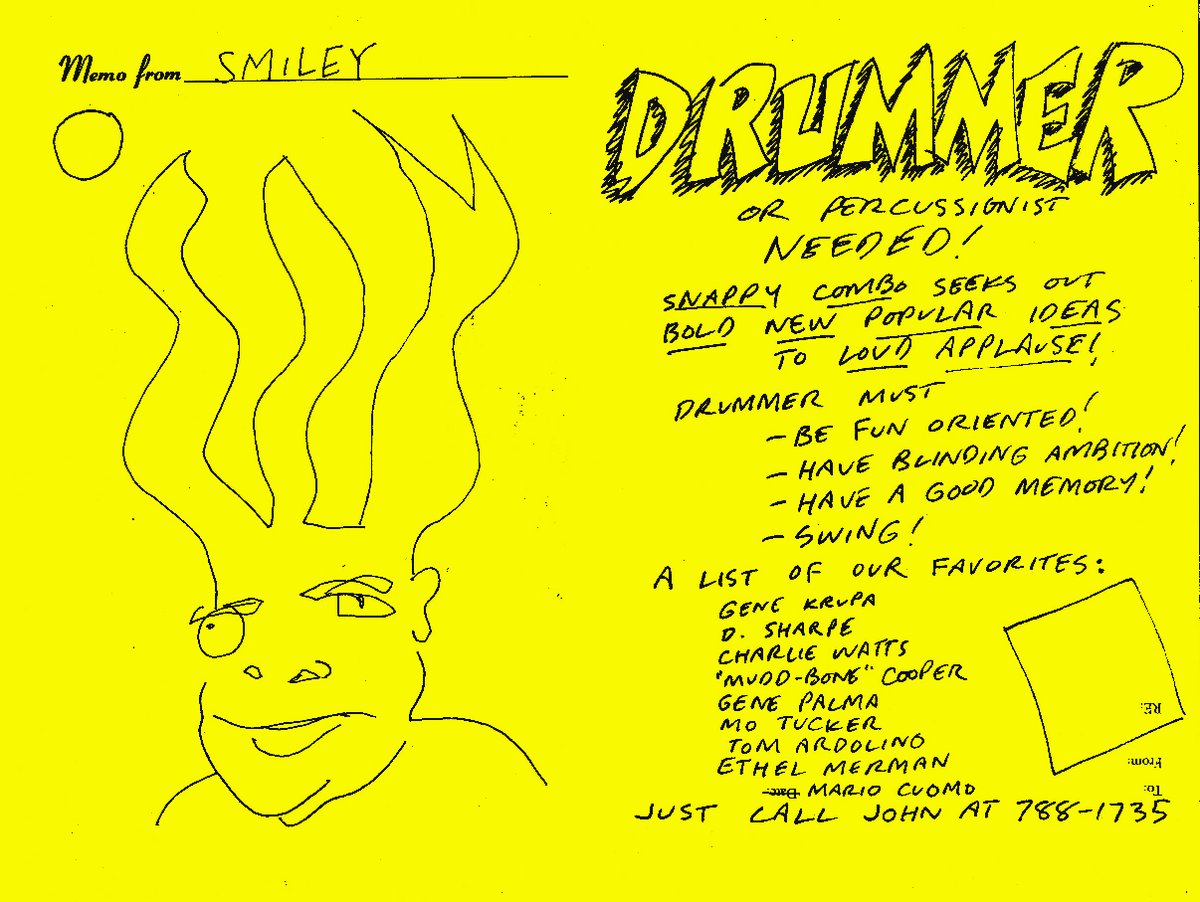 Memo from SMILEY
DRUMMER
OR PERCUSSIONIST
NEEDED!
SNAPPY COMBO SEEKS OUT
BOLD NEW POPULAR IDEAS
TO LOUD APPLAUSE!
DRUMMER MUST
- BE FUN ORIENTED!
- HAVE BLINDING AMBITION!
- HAVE A GOOD MEMORY!
- SWING!
A LIST OF OUR FAVORITES:
GENE KRUPA
D. SHARPE
CHARLIE WATTS
"MUDD-BONE" COOPER
GENE PALMA
MO TUCKER
TOM ARDOLINO
ETHEL MERMAN
Date: MARIO CUOMO
JUST CALL JOHN AT 788-1735
RE:
From:
To: